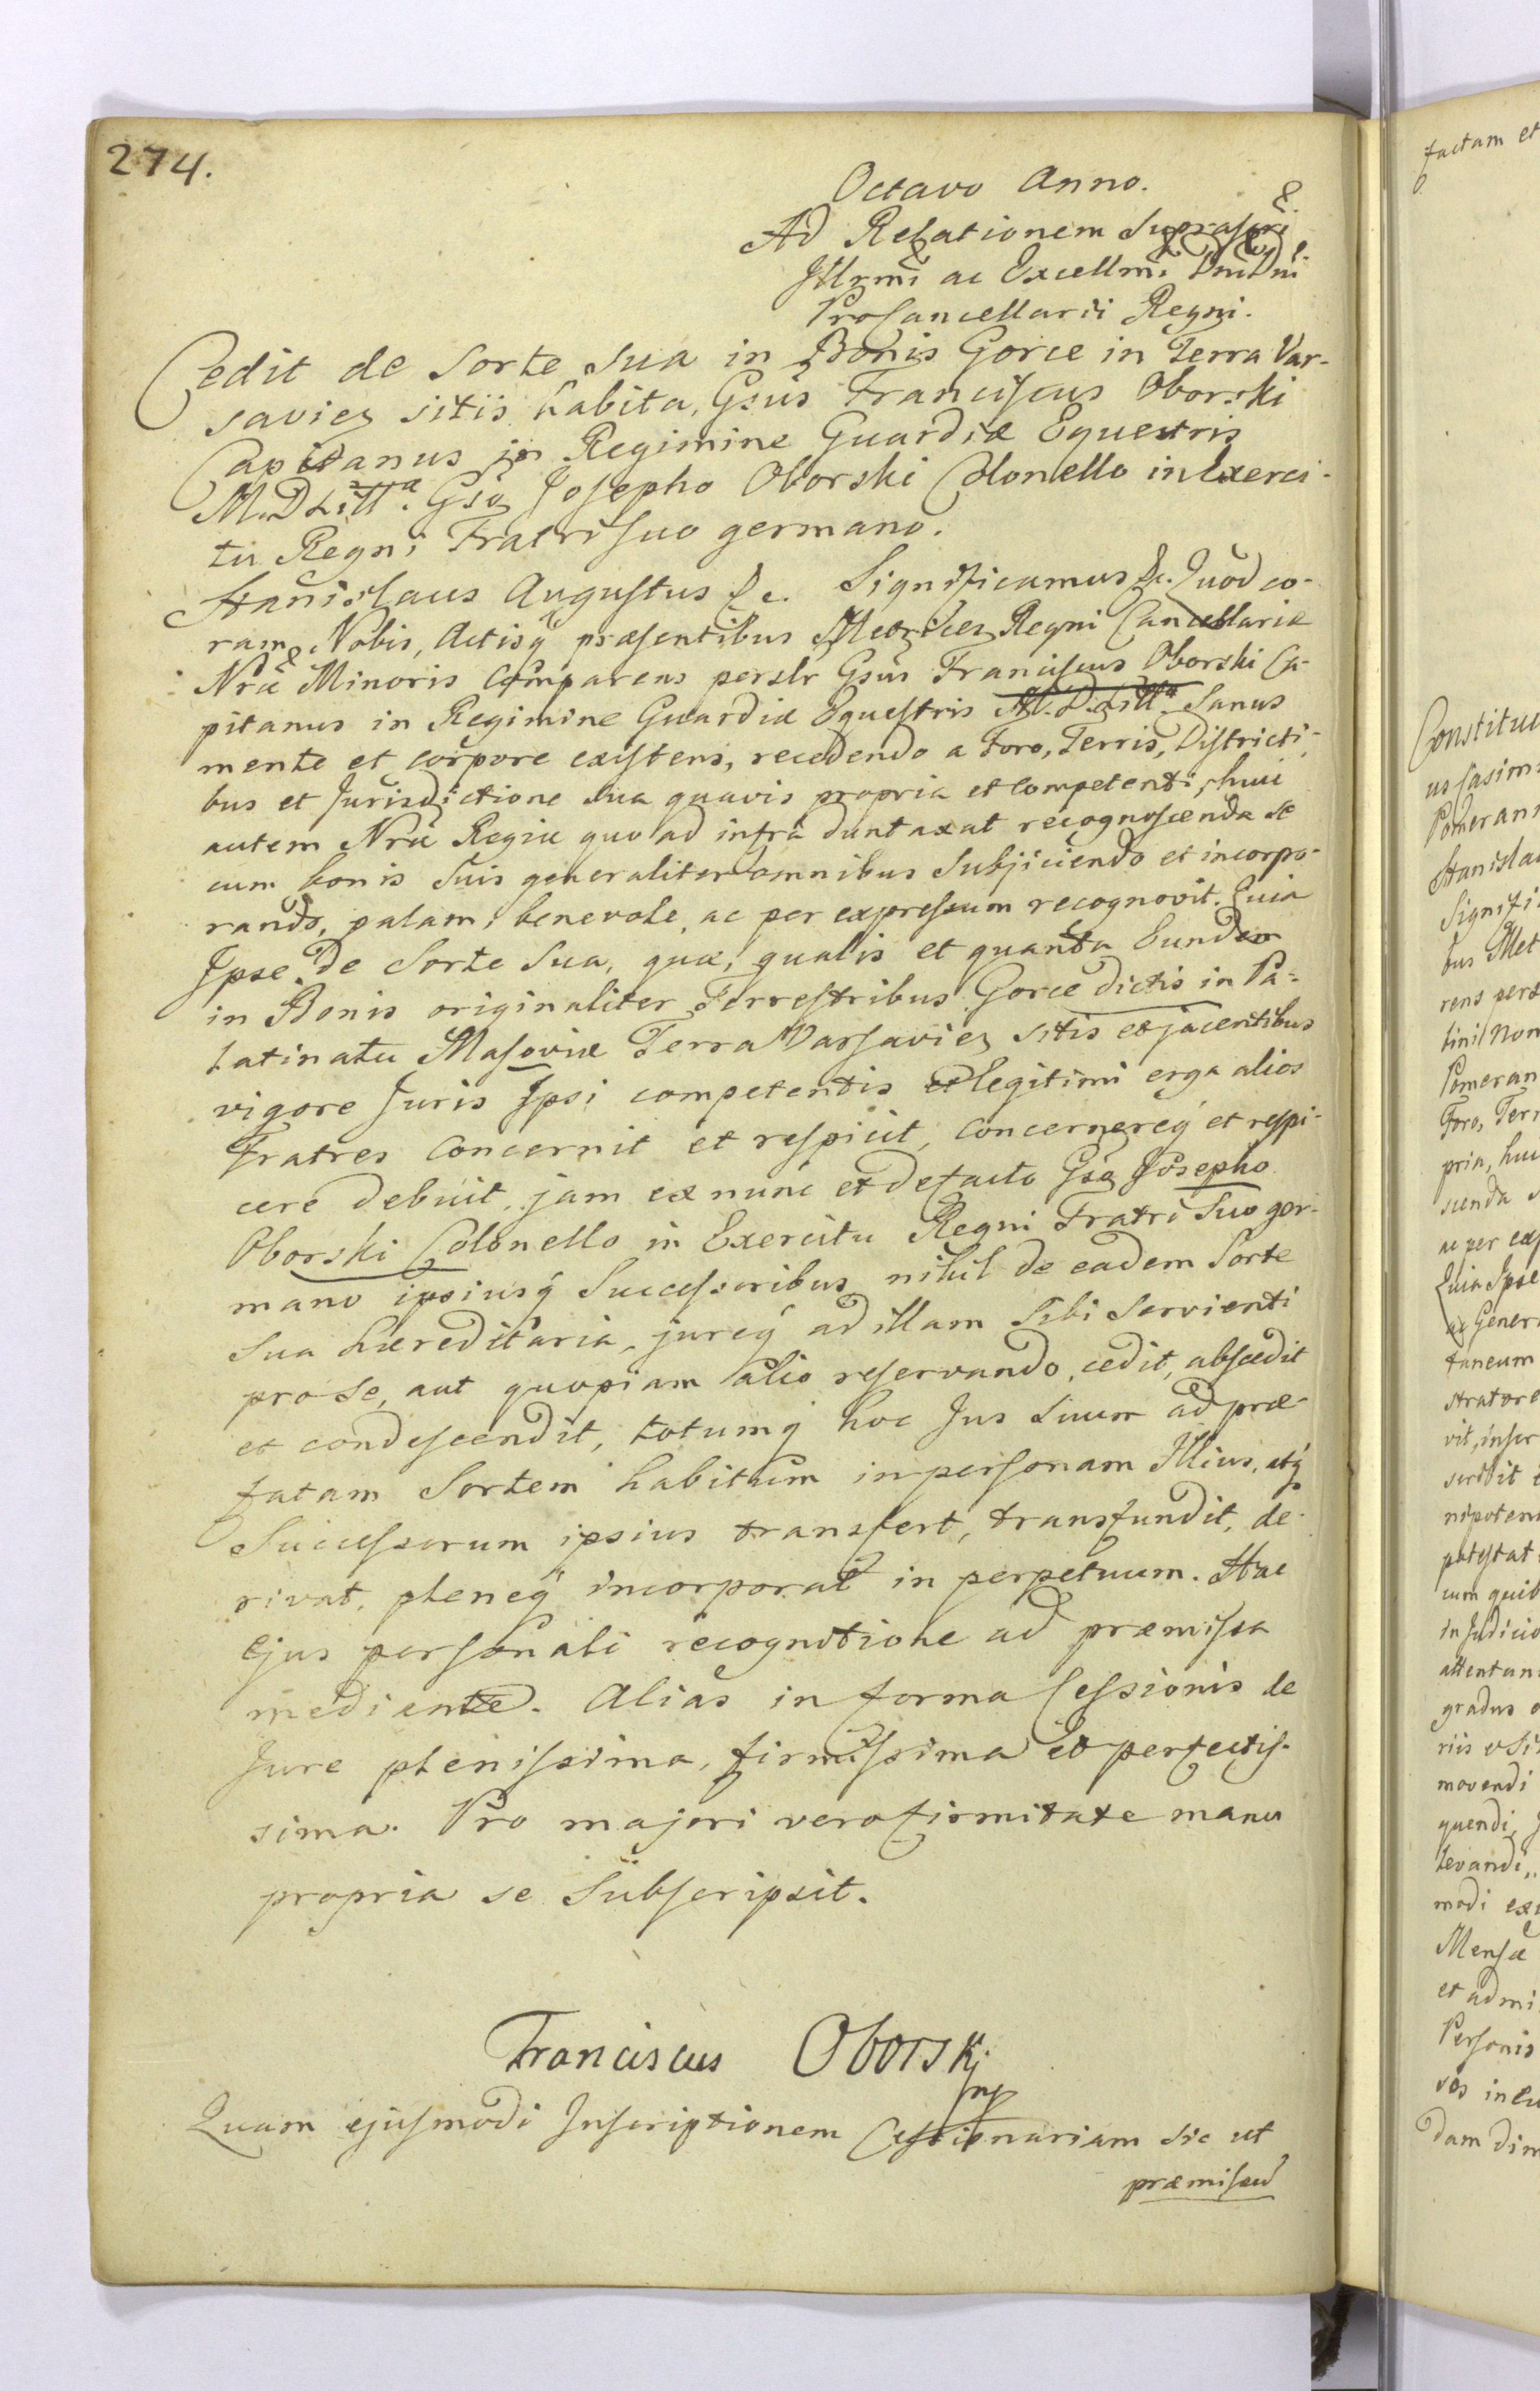 274.
Octavo Anno.
Ad Relationem Suprascri
Illrmi ac Excellmi Dni Dni
ProCancellarii Regni.
Cedit de Sorte sua in Bonis Gorce in Terra Var-
saviez sitis habita, Gsus Franciscus Oborski
Capitanus in Regimine Guardiæ Equestris
M. D. Litt. Gso Josepho Oborski Colonello in Exerci-
tu Regni Fratri suo germano.
Stanislaus Augustus &c. Significamus &c. Quod co-
ram Nobis, Actisq præsentibus Metrices Regni Cancellariæ
Nræ Minoris Comparens perslr Gsus Franciscus Oborski Ca-
pitanus in Regimine Guardiæ Equestris M. D. Litt. Sanus
mente et corpore existens, recedendo a Foro, Terris, Districti-
bus et Jurisdictione sua quavis propria et competenti, huic
autem Nræ Regiæ quo ad infra duntaxat recognoscenda se
cum bonis suis generaliter omnibus Subjiciendo et incorpo-
rando, palam, benevole, ac per expressum recognovit. Quia
Ipse de Sorte Sua, quæ, qualis et quanta Eundem
in Bonis originaliter Terrestribus Gorce dictis in Pa-
latinatu Masoviæ Terra Varsaviez sitis et jacentibus
vigore Juris Ipsi competentis et legitimi erga alios
Fratres Concernit et respicit, concernereq et respi-
cere debuit, jam ex nunc et de facto Gso Josepho
Oborski Colonello in Exercitu Regni Fratri Suo ger-
mano ipsiusq Successoribus nihil de eadem Sorte
sua hæreditaria, jureq ad illam Sibi Servienti
pro se, aut quopiam alio reservando, cedit, abscedit
et condescendit, totumq hoc Jus suum ad præ-
fatam Sortem habitum in personam Illius, atq
Successorum ipsius transfert, transfundit, de-
rivat, pleneq incorporat in perpetuum. Hac
ejus personali recognitione ad præmissa
mediante. Alias in forma Cessionis de
Jure plenissima, firmissima et perfectis-
sima. Pro majori vero firmitate manu
propria se Subscripsit.
Franciscus Oborski
mp
Quam ejusmodi Inscriptionem Cessionariam sic ut
præmissu
factam et
Constitu
Pomeran
Stanisla
Signifi
bus Met
rens pers
tini Non
Pomeran
Foro, Terr
pria, hu
scenda s
ac per exp
Quia Ipse
ac Gener
taneum
strator
vit, inser
scribit
nipoten
potestat
cum quib
in Judicio
attentan
gradus
movendi
quendi,
levandi,
modi ex
Mensæ
et admi
Personis
vos in cu
dam dim